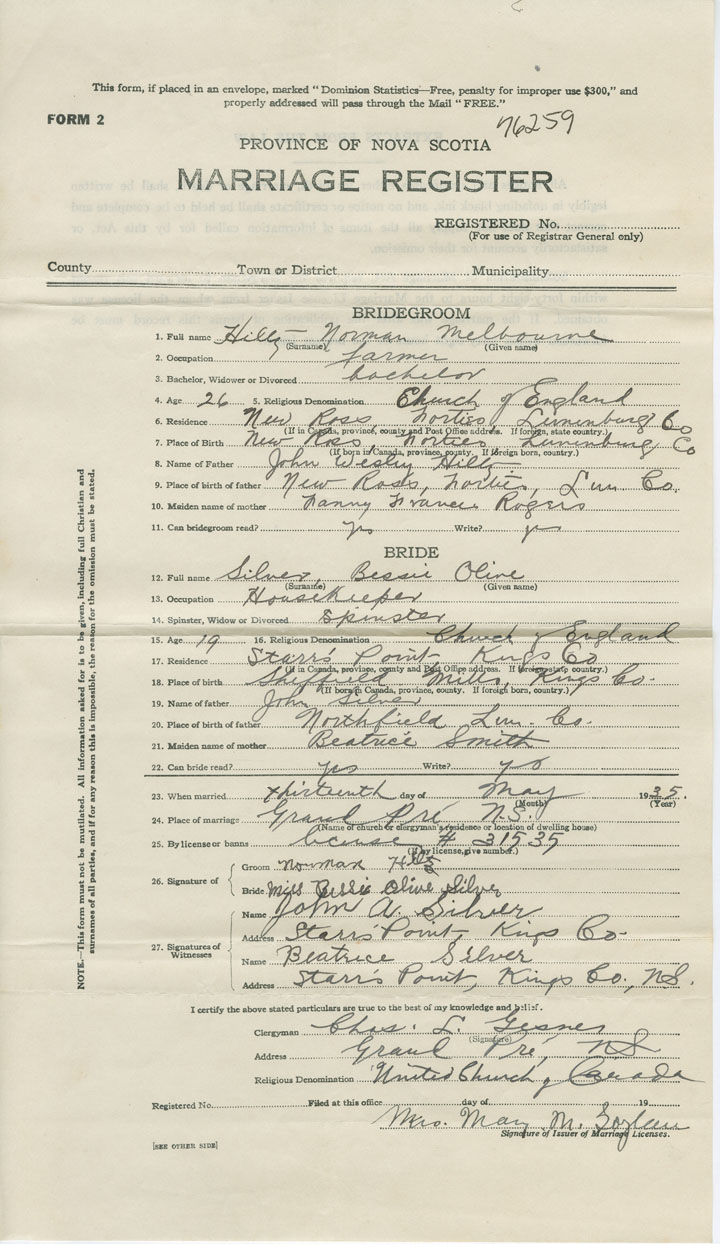 This form, if placed in an envelope, marked "Dominion Statistics—Free, penalty for improper use $300," and
properly addressed will pass through the Mail "FREE."
FORM 2
76259
PROVINCE OF NOVA SCOTIA
MARRIAGE REGISTER
REGISTERED No.
(For use of Registrar General only)
County Town or District Municipality
BRIDEGROOM
1. Full name Hilts Norman Melbourne
(Surname) (Given name)
2. Occupation farmer
3. Bachelor, Widower or Divorced bachelor
4. Age 26 5. Religious Denomination Church of England
6. Residence New Ross, Forties, Lunenburg Co
(If in Canada, province, county and Post Office address. If foreign, state country.)
7. Place of Birth New Ross, Forties Lunenburg Co
(If born in Canada, province, county. If foreign born, country.)
8. Name of Father John Wesley Hilts
9. Place of birth of father New Ross, Forties, Lun Co.
10. Maiden name of mother Fanny Frances Rogers
11. Can bridegroom read? yes Write? yes
BRIDE
12. Full name Silver, Bessie Olive
(Surname) (Given name)
13. Occupation Housekeeper
14. Spinster, Widow or Divorced Spinster
15. Age 19 16. Religious Denomination Church of England
17. Residence Starr's Point, Kings Co
(If in Canada, province, county and Post Office address. If foreign, state country.)
18. Place of birth Sheffield Mills, Kings Co.
(If born in Canada, province, county. If foreign born, country.)
19. Name of father John Silver
20. Place of birth of father Northfield Lun. Co.
21. Maiden name of mother Beatrice Smith
22. Can bride read? yes Write? yes
23. When married thirteenth day of May 1935.
(Month) (Year)
24. Place of marriage Grand Pré N.S.
(Name of church or clergyman's residence or location of dwelling house)
25. By license or banns license # 31535
(If by license, give number.)
26. Signature of
Groom Norman Hilts
Bride Miss Bessie Olive Silver
27. Signatures of Witnesses
Name John A. Silver
Address Starr's Point, Kings Co.
Name Beatrice Silver
Address Starr's Point, Kings Co., N.S.
I certify the above stated particulars are true to the best of my knowledge and belief.
Clergyman Chas. L. Gesner
(Signature)
Address Grand Pré, NS
Religious Denomination United Church of Canada
Registered No. Filed at this office day of 19
Mrs. May M.
Signature of Issuer of Marriage Licenses.
[SEE OTHER SIDE]
NOTE.—This form must not be mutilated. All information asked for is to be given, including full Christian and
surnames of all parties, and if for any reason this is impossible, the reason for the omission must be stated.